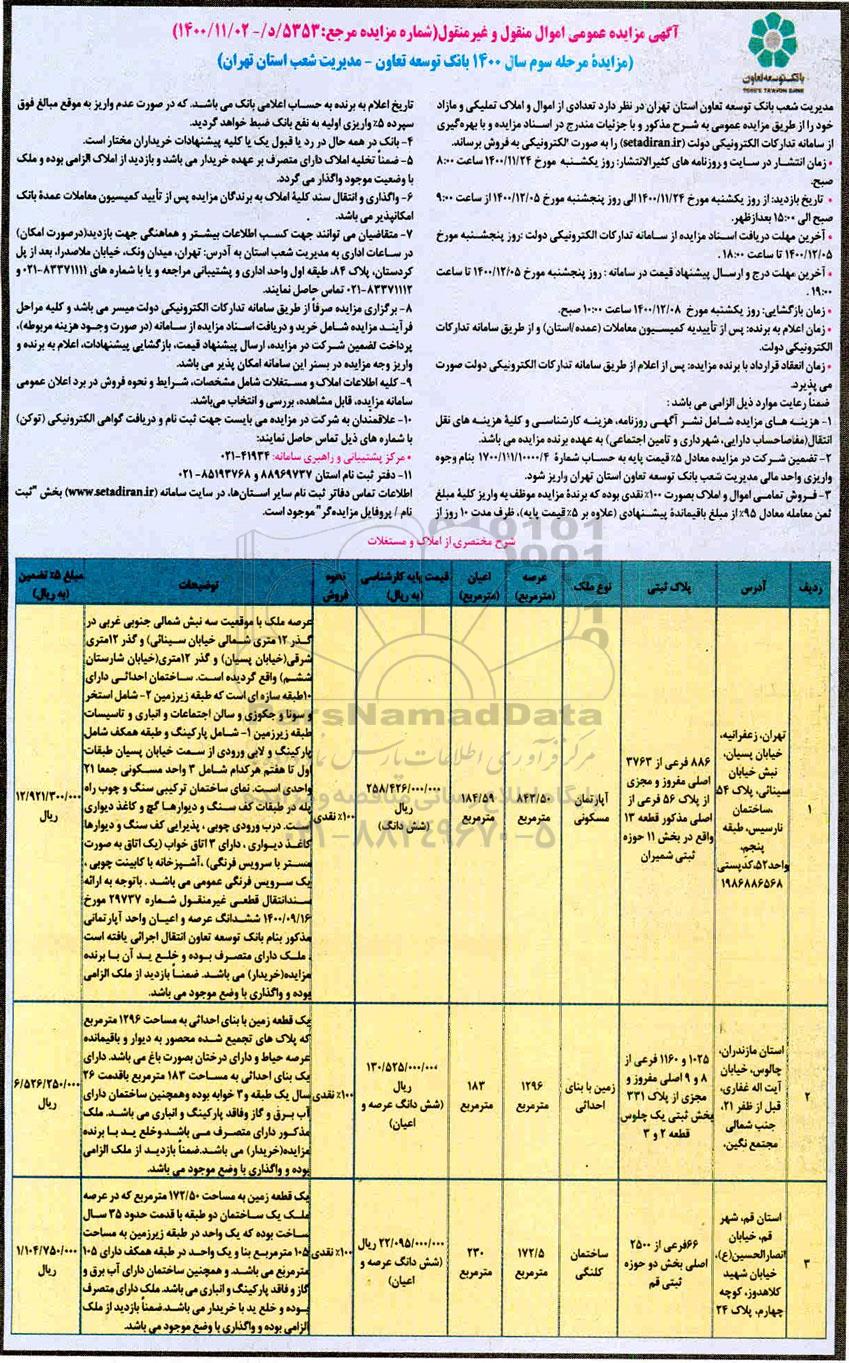 آگهی مزایده عمومی اموال منقول و غیرمنقول(شماره مزایده مرجع:۵۳۵۳/د/- ۱۴۰۰/۱۱/۰۲)
(مزایدهٔ مرحله سوم سال ۱۴۰۰ بانک توسعه تعاون - مدیریت شعب استان تهران)
بانک توسعه تعاون
TOSE'E TA'AVON BANK
مدیریت شعب بانک توسعه تعاون استان تهران در نظر دارد تعدادی از اموال و املاک تملیکی و مازاد
خود را از طریق مزایده عمومی به شرح مذکور و با جزئیات مندرج در اسناد مزایده و با بهره‌گیری
از سامانه تدارکات الکترونیکی دولت (setadiran.ir) را به صورت الکترونیکی به فروش برساند.
• زمان انتشار در سایت و روزنامه های کثیرالانتشار: روز یکشنبه مورخ ۱۴۰۰/۱۱/۲۴ ساعت ۸:۰۰
صبح.
• تاریخ بازدید: از روز یکشنبه مورخ ۱۴۰۰/۱۱/۲۴ الی روز پنجشنبه مورخ ۱۴۰۰/۱۲/۰۵ از ساعت ۹:۰۰
صبح الی ۱۵:۰۰ بعدازظهر.
• آخرین مهلت دریافت اسناد مزایده از سامانه تدارکات الکترونیکی دولت :روز پنجشنبه مورخ
۱۴۰۰/۱۲/۰۵ تا ساعت ۱۸:۰۰ .
• آخرین مهلت درج و ارسال پیشنهاد قیمت در سامانه : روز پنجشنبه مورخ ۱۴۰۰/۱۲/۰۵ تا ساعت
۱۹:۰۰ .
• زمان بازگشایی: روز یکشنبه مورخ ۱۴۰۰/۱۲/۰۸ ساعت ۱۰:۰۰ صبح.
• زمان اعلام به برنده: پس از تأییدیه کمیسیون معاملات (عمده/استان) و از طریق سامانه تدارکات
الکترونیکی دولت.
• زمان انعقاد قرارداد با برنده مزایده: پس از اعلام از طریق سامانه تدارکات الکترونیکی دولت صورت
می پذیرد.
ضمناً رعایت موارد ذیل الزامی می باشد :
۱- هزینه های مزایده شامل نشر آگهی روزنامه، هزینه کارشناسی و کلیهٔ هزینه های نقل
انتقال(مفاصاحساب دارایی، شهرداری و تامین اجتماعی) به عهده برنده مزایده می باشد.
۲- تضمین شرکت در مزایده معادل ۵٪ قیمت پایه به حساب شمارهٔ ۱۷۰۰/۱۱۱/۱۰۰۰۰/۴ بنام وجوه
واریزی واحد مالی مدیریت شعب بانک توسعه تعاون استان تهران واریز شود.
۳- فروش تمامی اموال و املاک بصورت ۱۰۰٪ نقدی بوده که برندهٔ مزایده موظف به واریز کلیهٔ مبلغ
ثمن معامله معادل ۹۵٪ از مبلغ باقیماندهٔ پیشنهادی (علاوه بر ۵٪ قیمت پایه)، ظرف مدت ۱۰ روز از
تاریخ اعلام به برنده به حساب اعلامی بانک می باشد. که در صورت عدم واریز به موقع مبالغ فوق
سپرده ۵٪ واریزی اولیه به نفع بانک ضبط خواهد گردید.
۴- بانک در همه حال در رد یا قبول یک یا کلیه پیشنهادات خریداران مختار است.
۵- ضمناً تخلیه املاک دارای متصرف بر عهده خریدار می باشد و بازدید از املاک الزامی بوده و ملک
با وضعیت موجود واگذار می گردد.
۶- واگذاری و انتقال سند کلیهٔ املاک به برندگان مزایده پس از تأیید کمیسیون معاملات عمدهٔ بانک
امکانپذیر می باشد.
۷- متقاضیان می توانند جهت کسب اطلاعات بیشتر و هماهنگی جهت بازدید(درصورت امکان)
در ساعات اداری به مدیریت شعب استان به آدرس: تهران، میدان ونک، خیابان ملاصدرا، بعد از پل
کردستان، پلاک ۸۴، طبقه اول واحد اداری و پشتیبانی مراجعه و یا با شماره های ۸۳۳۷۱۱۱۱-۰۲۱ و
۸۳۳۷۱۱۱۲-۰۲۱ تماس حاصل نمایند.
۸- برگزاری مزایده صرفاً از طریق سامانه تدارکات الکترونیکی دولت میسر می باشد و کلیه مراحل
فرآیند مزایده شامل خرید و دریافت اسناد مزایده از سامانه (در صورت وجود هزینه مربوطه)،
پرداخت تضمین شرکت در مزایده، ارسال پیشنهاد قیمت، بازگشایی پیشنهادات، اعلام به برنده و
واریز وجه مزایده در بستر این سامانه امکان پذیر می باشد.
۹- کلیه اطلاعات املاک و مستغلات شامل مشخصات، شرایط و نحوه فروش در برد اعلان عمومی
سامانه مزایده، قابل مشاهده، بررسی و انتخاب می‌باشد.
۱۰- علاقمندان به شرکت در مزایده می بایست جهت ثبت نام و دریافت گواهی الکترونیکی (توکن)
با شماره های ذیل تماس حاصل نمایند:
• مرکز پشتیبانی و راهبری سامانه: ۴۱۹۳۴-۰۲۱
۱۱- دفتر ثبت نام استان ۸۸۹۶۹۷۳۷ و ۸۵۱۹۳۷۶۸-۰۲۱
اطلاعات تماس دفاتر ثبت نام سایر استان‌ها، در سایت سامانه (www.setadiran.ir) بخش "ثبت
نام / پروفایل مزایده‌گر" موجود است.
شرح مختصری از املاک و مستغلات
ردیف
آدرس
پلاک ثبتی
نوع ملک
عرصه (مترمربع)
اعیان (مترمربع)
قیمت پایه کارشناسی (به ریال)
نحوه فروش
توضیحات
مبلغ ۵٪ تضمین (به ریال)
۱
تهران، زعفرانیه،
خیابان پسیان،
نبش خیابان
سینائی، پلاک ۵۴
،ساختمان
نارسیس، طبقه
پنجم،
واحد۵۲،کدپستی
۱۹۸۶۸۸۶۵۶۸
۸۸۶ فرعی از ۳۷۶۳
اصلی مفروز و مجزی
از پلاک ۵۶ فرعی از
اصلی مذکور قطعه ۱۳
واقع در بخش ۱۱ حوزه
ثبتی شمیران
آپارتمان
مسکونی
۸۴۳/۵۰
مترمربع
۱۸۴/۵۹
مترمربع
۲۵۸/۴۲۶/۰۰۰/۰۰۰
ریال
(شش دانگ)
۱۰۰٪ نقدی
عرصه ملک با موقعیت سه نبش شمالی جنوبی غربی در
گذر ۱۲ متری شمالی خیابان سینائی) و گذر ۱۲متری
شرقی(خیابان پسیان) و گذر ۱۲متری(خیابان شارستان
ششم) واقع گردیده است. ساختمان احداثی دارای
۱۰طبقه سازه ای است که طبقه زیرزمین ۲- شامل استخر
و سونا و جکوزی و سالن اجتماعات و انباری و تاسیسات
طبقه زیرزمین ۱- شامل پارکینگ و طبقه همکف شامل
پارکینگ و لابی ورودی از سمت خیابان پسیان طبقات
اول تا هفتم هرکدام شامل ۳ واحد مسکونی جمعا ۲۱
واحدی است. نمای ساختمان ترکیبی سنگ و چوب راه
پله در طبقات کف سنگ و دیوارها گچ و کاغذ دیواری
است. درب ورودی چوبی ، پذیرایی کف سنگ و دیوارها
کاغذ دیواری ، دارای ۳ اتاق خواب (یک اتاق به صورت
مستر با سرویس فرنگی) ،آشپزخانه با کابینت چوبی ،
یک سرویس فرنگی عمومی می باشد . باتوجه به ارائه
سندانتقال قطعی غیرمنقول شماره ۲۹۷۳۷ مورخ
۱۴۰۰/۰۹/۱۶ ششدانگ عرصه و اعیان واحد آپارتمانی
مذکور بنام بانک توسعه تعاون انتقال اجرائی یافته است
. ملک دارای متصرف بوده و خلع ید آن با برنده
مزایده(خریدار) می باشد. ضمناً بازدید از ملک الزامی
بوده و واگذاری با وضع موجود می باشد.
۱۲/۹۲۱/۳۰۰/۰۰۰
ریال
۲
استان مازندران،
چالوس، خیابان
آیت اله غفاری،
قبل از ظفر ۲۱،
جنب شمالی
مجتمع نگین،
۱۰۲۵ و ۱۱۶۰ فرعی از
۸ و ۹ اصلی مفروز و
مجزی از پلاک ۳۳۱
بخش ثبتی یک چلوس
قطعه ۲ و ۳
زمین با بنای
احداثی
۱۲۹۶
مترمربع
۱۸۳
مترمربع
۱۳۰/۵۲۵/۰۰۰/۰۰۰
ریال
(شش دانگ عرصه و
اعیان)
۱۰۰٪ نقدی
یک قطعه زمین با بنای احداثی به مساحت ۱۲۹۶ مترمربع
که پلاک های تجمیع شده محصور به دیوار و باقیمانده
عرصه حیاط و دارای درختان بصورت باغ می باشد. دارای
یک بنای احداثی به مساحت ۱۸۳ مترمربع باقدمت ۲۶
سال یک طبقه و ۳ خوابه بوده و همچنین ساختمان دارای
آب برق و گاز وفاقد پارکینگ و انباری می باشد. ملک
مذکور دارای متصرف می باشد.وخلع ید با برنده
مزایده(خریدار) می باشد.ضمناً بازدید از ملک الزامی
بوده و واگذاری با وضع موجود می باشد.
۶/۵۲۶/۲۵۰/۰۰۰
ریال
۳
استان قم، شهر
قم، خیابان
انصارالحسین(ع)،
خیابان شهید
کلاهدوز، کوچه
چهارم، پلاک ۲۴
۶۶فرعی از ۲۵۰۰
اصلی بخش دو حوزه
ثبتی قم
ساختمان
کلنگی
۱۷۲/۵
مترمربع
۲۳۰
مترمربع
۲۲/۰۹۵/۰۰۰/۰۰۰ ریال
(شش دانگ عرصه و
اعیان)
۱۰۰٪ نقدی
یک قطعه زمین به مساحت ۱۷۲/۵۰ مترمربع که در عرصه
ملک یک ساختمان دو طبقه با قدمت حدود ۳۵ سال
ساخت بوده که یک واحد در طبقه زیرزمین به مساحت
۱۰۵ مترمربع بنا و یک واحد در طبقه همکف دارای ۱۰۵
مترمربع می باشد. و همچنین ساختمان دارای آب برق و
گاز و فاقد پارکینگ و انباری می باشد. ملک دارای متصرف
بوده و خلع ید با خریدار می باشد.ضمناً بازدید از ملک
الزامی بوده و واگذاری با وضع موجود می باشد.
۱/۱۰۴/۷۵۰/۰۰۰
ریال
ParsNamadData
۰۲۱-۸۸۳۴۹۶۷۰-۵